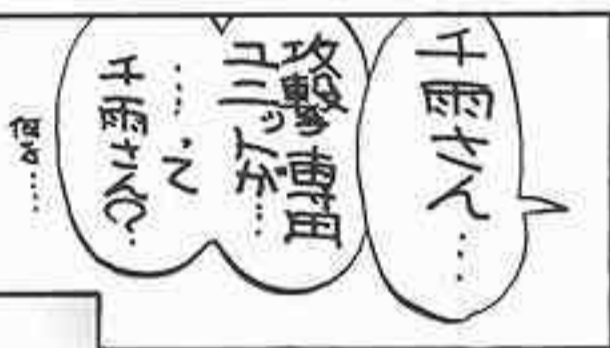 千雨さん…
攻撃専用
ユニットが…
……って
千雨さんの‥
何よ……